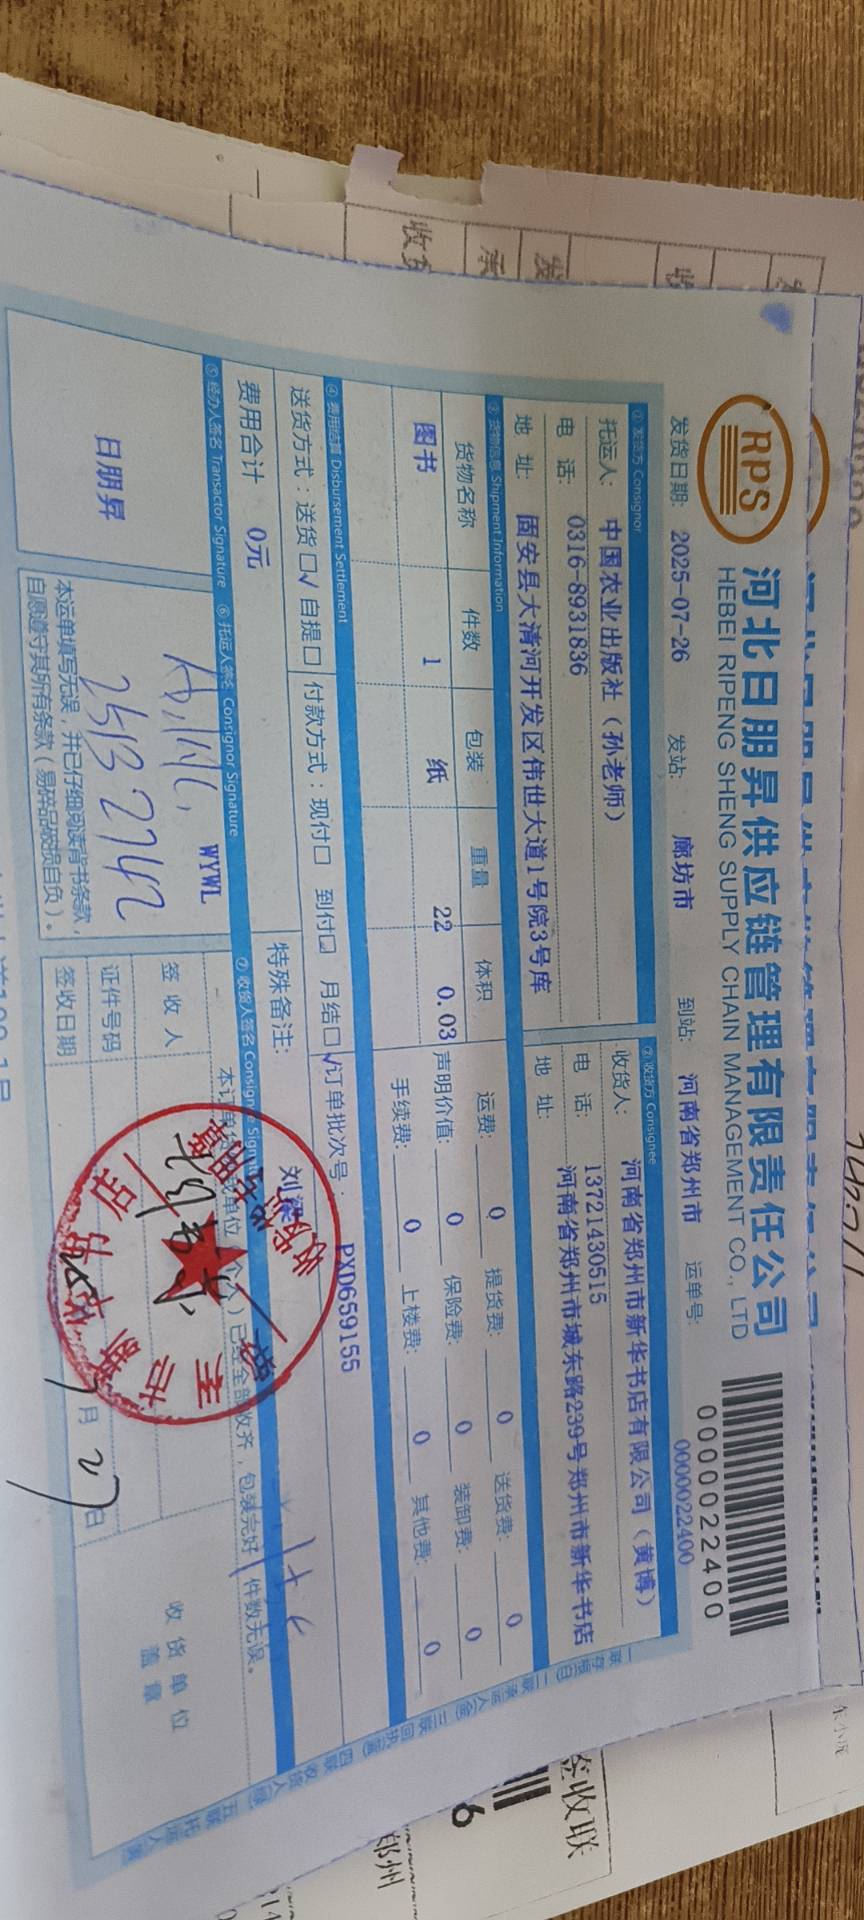 RPS
河北日朋昇供应链管理有限责任公司
HEBEI RIPENG SHENG SUPPLY CHAIN MANAGEMENT CO., LTD
0000022400
发货日期: 2025-07-26 发站: 廊坊市 到站: 河南省郑州市 运单号: 0000022400
① 发货方 Consignor
托运人: 中国农业出版社（孙老师）
电 话: 0316-8931836
地 址: 固安县大清河开发区伟世大道1号院3号库
② 收货方 Consignee
收货人: 河南省郑州市新华书店有限公司（黄博）
电 话: 13721430515
地 址: 河南省郑州市城东路239号郑州市新华书店
③ 货物信息 Shipment Information
货物名称 件数 包装 重量 体积
图书 1 纸 22 0.03
运费: 0 提货费: 0 送货费: 0
声明价值: 0 保险费: 0 装卸费: 0
手续费: 0 上楼费: 0 其他费: 0
④ 费用结算 Disbursement Settlement
送货方式：送货□√ 自提□ 付款方式：现付□ 到付□ 月结□√ 订单批次号: PXD659155
费用合计 0元
特殊备注: 刘梁
⑤ 经办人签名 Transactor Signature ⑥ 托运人签名 Consignor Signature ⑦ 收货人签名 Consignee Signature
日朋昇
WYWL
25132742
本运单填写无误，并已仔细阅读背书条款，
自愿遵守其所有条款（易碎品破损自负）。
已经全部收齐，包装完好，件数无误。
签 收 人
证件号码
签收日期 7月27日
收货单位
盖章
收发货专用章
签收联
6
郑州